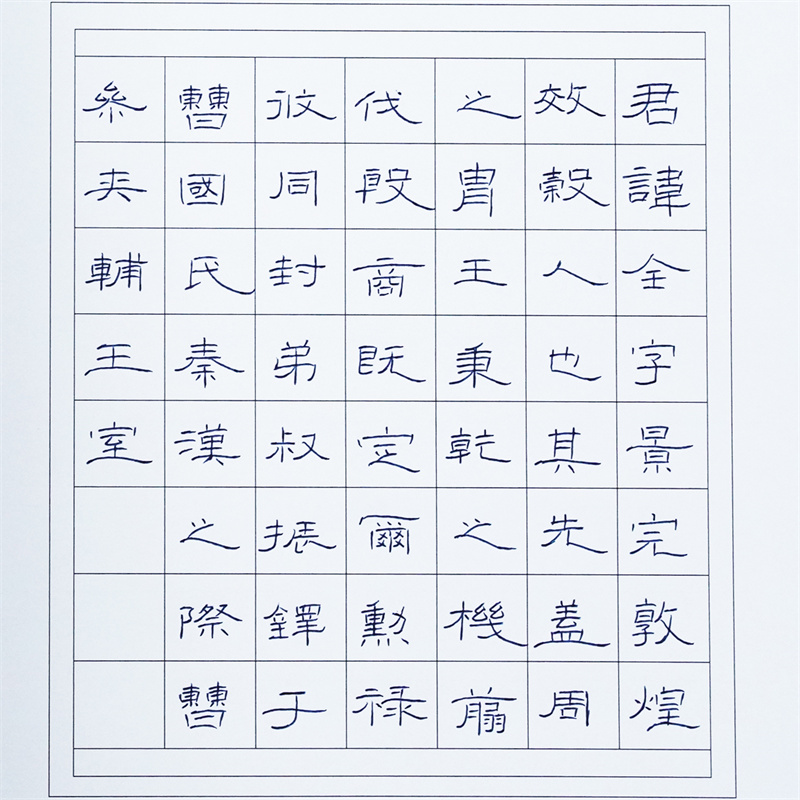 君諱全字景完敦煌
效穀人也其先蓋周
之胄王秉乾之機翦
伐殷商既定爾勳禄
攸同封弟叔振鐸于
曹國氏秦漢之際曹
參夾輔王室